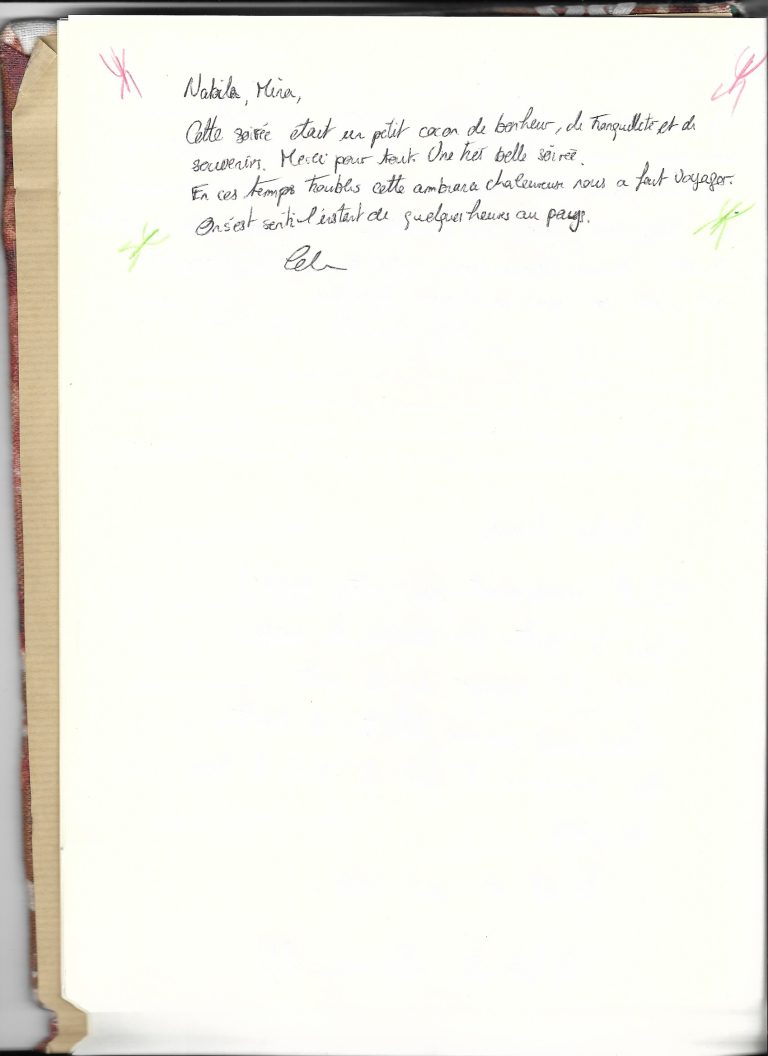 Nabila, Mina,
Cette soirée était un petit cocon de bonheur, de tranquillité et de
souvenirs. Merci pour tout. Une très belle soirée.
En ces temps troubles cette ambiance chaleureuse nous a fait voyager.
On s'est senti l'instant de quelques heures au pays.